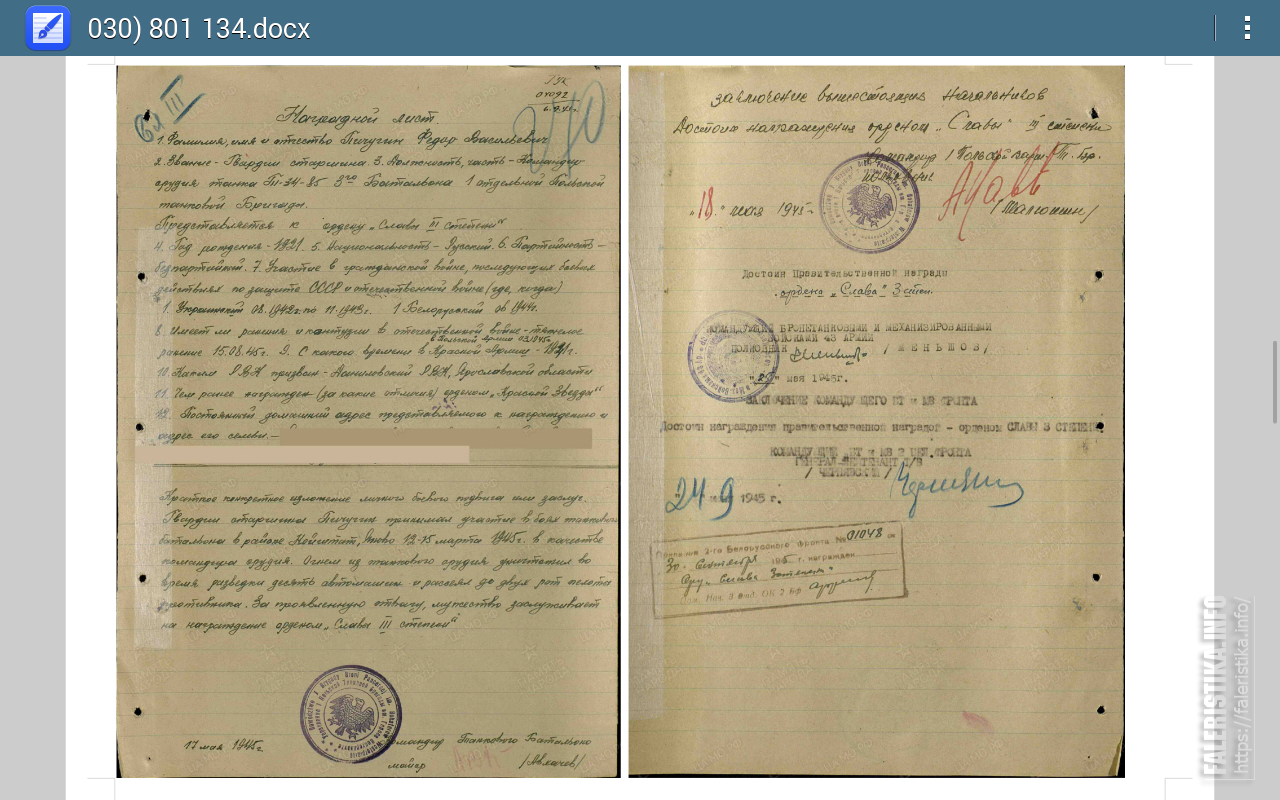 030) 801 134.docx
Бл III
Наградной лист
1. Фамилия, имя и отчество Пичугин Федор Васильевич
2. Звание - Гвардии старшина. 3. Должность, часть - Командир
орудия танка Тп-34-85 3го Батальона 1 отдельной Польской
танковой Бригады.
Представляется к ордену „Славы III степени"
4. Год рождения - 1921. 5. Национальность - Русский. 6. Партийность -
безпартийный. 7. Участие в гражданской войне, последующих боевых
действиях по защите СССР и отечественной войне (где, когда)
1. Украинский 08.1942г. по 11.1943г. 1 Белорусский 06 1944г.
8. Имеет ли ранения и контузии в отечественной войне - тяжелое
в Польской армии 03.1945
ранение 15.08.45г. 9. С какого времени в Красной Армии - 1941г.
10. Каким РВК призван - Даниловский РВК, Ярославской области
11. Чем ранее награжден (за какие отличия) орденом „Красной Звезды"
12. Постоянный домашний адрес представляемого к награждению и
адрес его семьи. -
Краткое конкретное изложение личного боевого подвига или заслуг
Гвардии старшина Пичугин принимал участие в боях танкового
батальона в районе 12-15 марта 1945г. в качестве
командира орудия. Огнем из танкового орудия уничтожил во
время разведки десять автомашин и рассеял до двух рот пехоты
противника. За проявленную отвагу, мужество заслуживает
на награждение орденом „Славы III степени"
17 мая 1945г. Командир Танкового Батальона
майор
заключение вышестоящих Начальников
Достоин награждения орденом „Славы" III степени
Командир 1 Польской Т. Бр.
полковник
„18." мая 1945г. /Малютин/
Достоин Правительственной награды
ордена „Слава" 3 степ.
КОМАНДУЮЩИЙ БРОНЕТАНКОВЫМИ И МЕХАНИЗИРОВАННЫМИ
ВОЙСКАМИ 43 АРМИИ
ПОЛКОВНИК /МЕНЬШОВ/
мая 1945г.
ЗАКЛЮЧЕНИЕ КОМАНДУЮЩЕГО БТ и МВ ФРОНТА
Достоин награждения правительственной наградой - орденом СЛАВЫ 3 СТЕПЕНИ
КОМАНДУЮЩИЙ БТ и МВ 2 БЕЛ.ФРОНТА
ГЕНЕРАЛ-ЛЕЙТЕНАНТ Т/В
24 9 1945 г.
Приказом 2-го Белорусского фронта № 01048 от
30. Сентября 1945 г. награжден
Орд. Слава 3 степени
FALERISTIKA.INFO
https://faleristika.info/